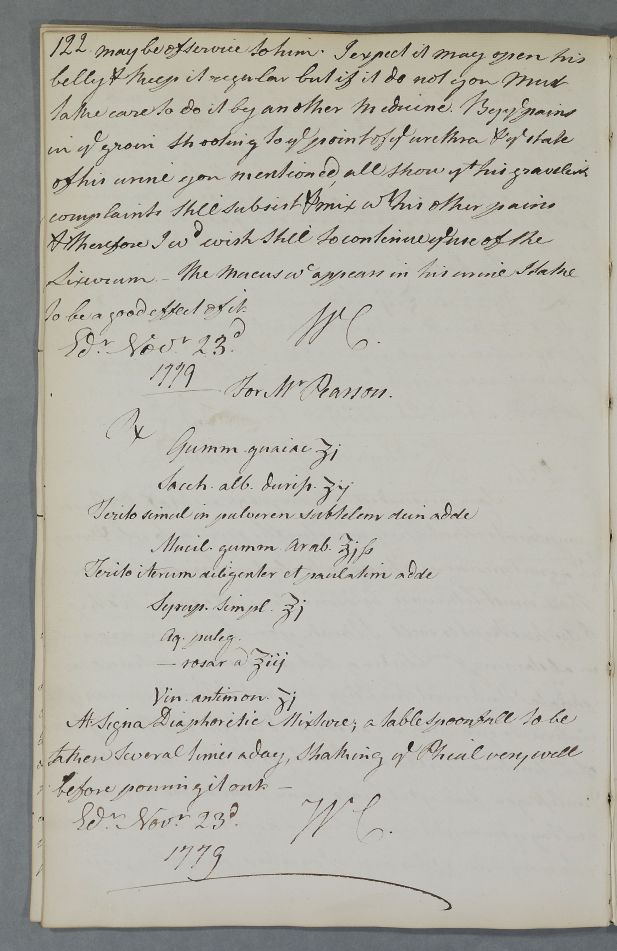 122 may be of service to him. I expect it may open his
belly & keep it regular but if it do not you must
take care to do it by another medicine. By yᵉ pains
in yᵉ groin shooting to yᵉ point of yᵉ urethra & yᵉ state
of his urine you mentioned, all show yᵗ his gravelish
complaints still subsist & mix wᵗ his other pains
& therefore I wᵈ wish still to continue yᵉ use of the
Lixivium – the Mucus wᶜ appears in his urine I take
to be a good effect of it
Edʳ. Novʳ. 23ᵈ. WC.
1779
For Mʳ Pearson.
℞
Gumm. guaiac ʒj
Sacch. alb. duriss. ʒij
Terito simul in pulverem subtilem dein adde
Mucil. gumm Arab. ℥jſs
Terito iterum diligenter et paulatim adde
Syrup. simpl. ℥j
Aq. puleg.
— rosar a ℥iij
Vin. antimon. ʒj
M. Signa Diaphoretic Mixture; a table spoonfull to be
taken several times a day, shaking yᵉ Phial very well
before pouring it out. –
Edʳ. Novʳ. 23ᵈ. WC.
1779